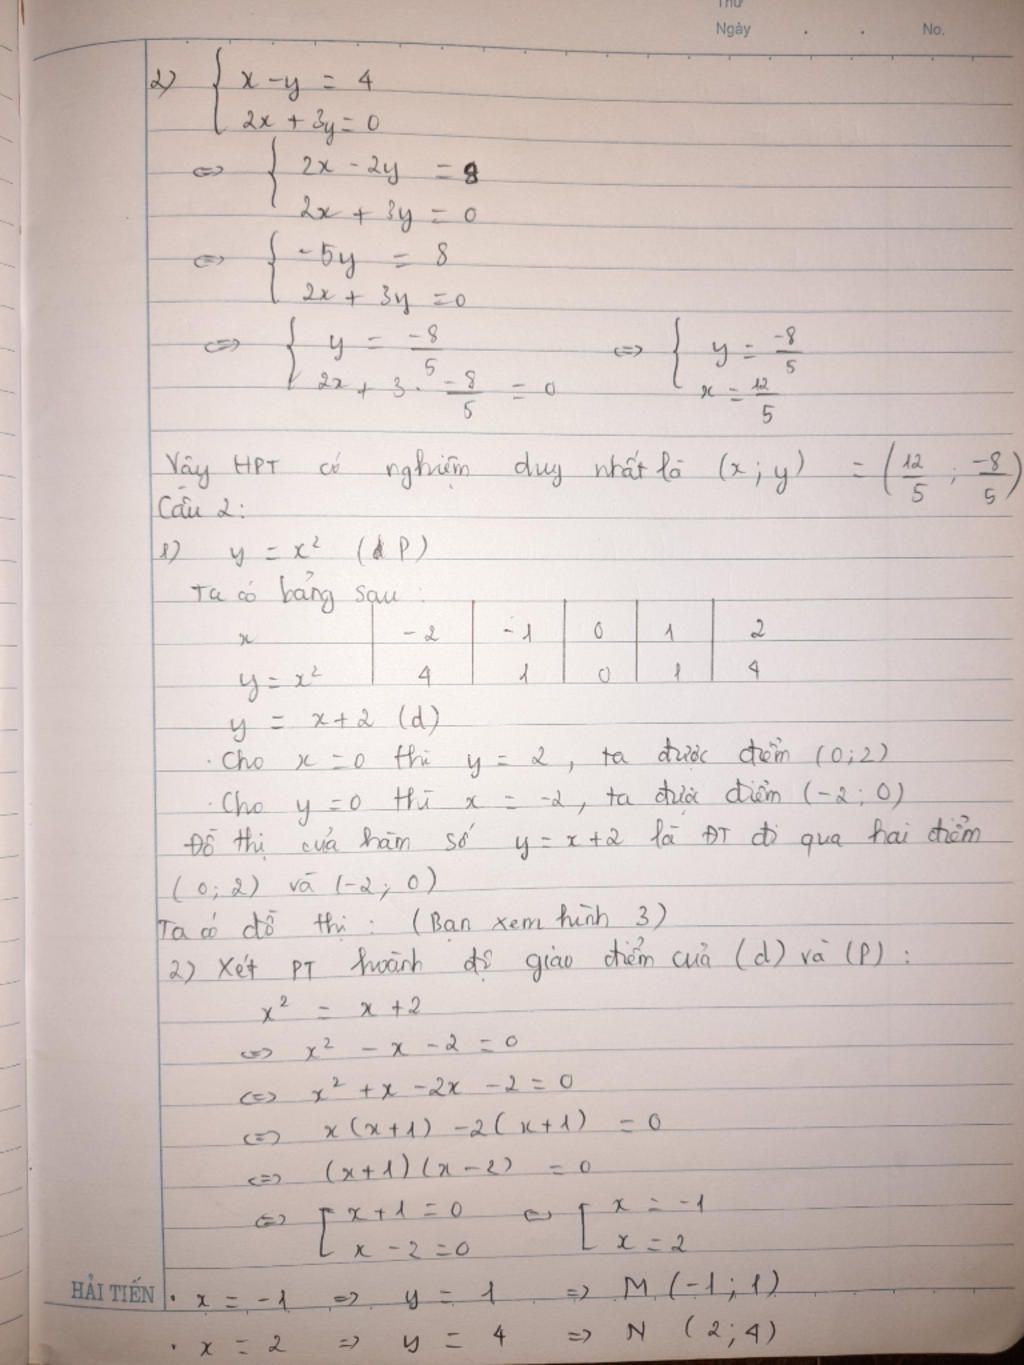 Thứ
Ngày . . No.
2) { x - y = 4
2x + 3y = 0
⇔ { 2x - 2y = 8
2x + 3y = 0
⇔ { -5y = 8
2x + 3y = 0
⇔ { y = -8/5 ⇔ { y = -8/5
2x + 3. -8/5 = 0 x = 12/5
Vậy HPT có nghiệm duy nhất là (x; y) = (12/5 ; -8/5)
Câu 2:
1) y = x² (P)
Ta có bảng sau:
x | -2 | -1 | 0 | 1 | 2
y = x² | 4 | 1 | 0 | 1 | 4
y = x+2 (d)
. Cho x = 0 thì y = 2, ta được điểm (0; 2)
. Cho y = 0 thì x = -2, ta được điểm (-2; 0)
Đồ thị của hàm số y = x+2 là ĐT đi qua hai điểm
(0; 2) và (-2; 0)
Ta có đồ thị: (Bạn xem hình 3)
2) Xét PT hoành độ giao điểm của (d) và (P):
x² = x + 2
⇔ x² - x - 2 = 0
⇔ x² + x - 2x - 2 = 0
⇔ x(x+1) - 2(x+1) = 0
⇔ (x+1)(x-2) = 0
⇔ [ x+1 = 0 ⇔ [ x = -1
x - 2 = 0 x = 2
HẢI TIẾN . x = -1 ⇒ y = 1 ⇒ M (-1; 1)
. x = 2 ⇒ y = 4 ⇒ N (2; 4)